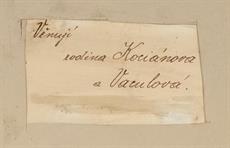 Věnují
rodina Kociánova
a Vaculová.